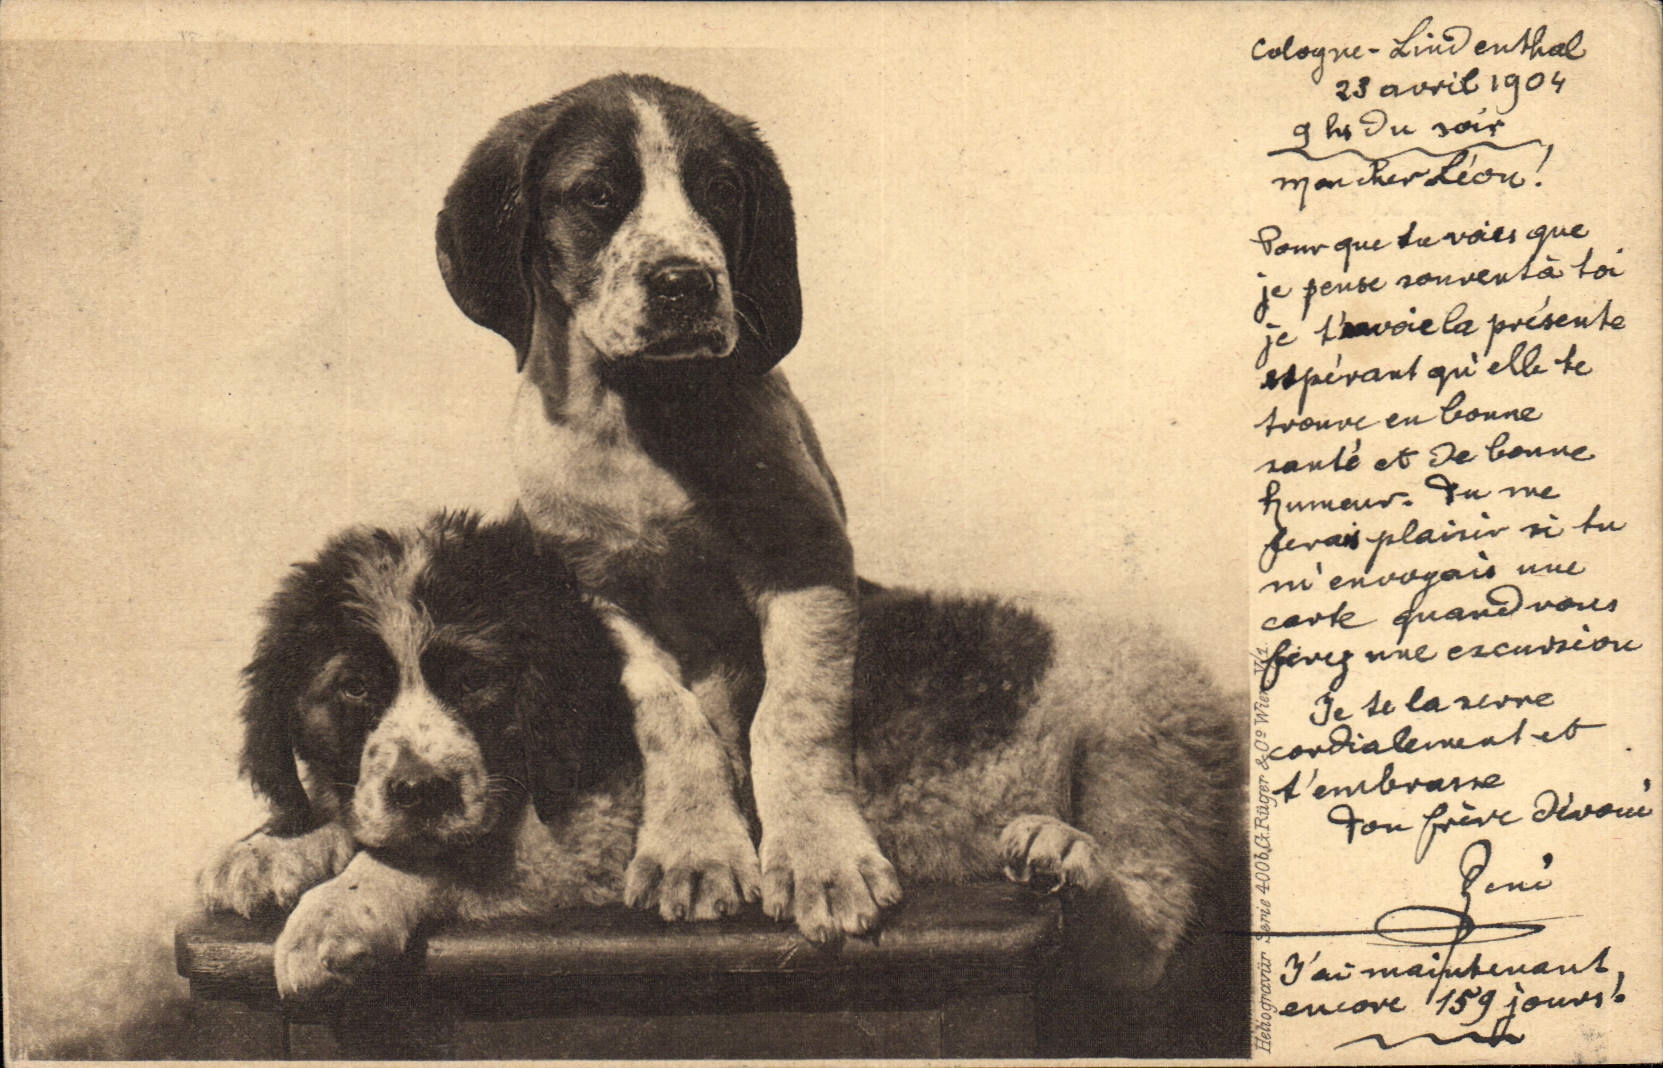 Cologne-Lindenthal
23 avril 1904
9 hs du soir
mon cher Léon!
Pour que tu voies que
je pense souvent à toi
je t'envoie la présente
espérant qu'elle te
trouve en bonne
santé et de bonne
humeur. Tu me
ferais plaisir si tu
m'envoyais une
carte quand vous
ferez une excursion
Je te la serre
cordialement et
t'embrasse
Ton frère dévoué
René
J'ai maintenant,
encore 159 jours!
Heliogravür Serie 400b, G. Rüger & Co Wien V/1.